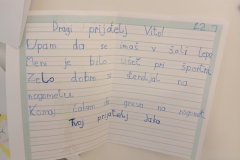 Dragi prijatelj Vito!
22.
Upam da se imaš v šoli lepo
Meni je bilo všeč pri športni
Zelo dobro si
nogometce
Komaj čakam na nogomet
Tvoj prijatelj Jaka